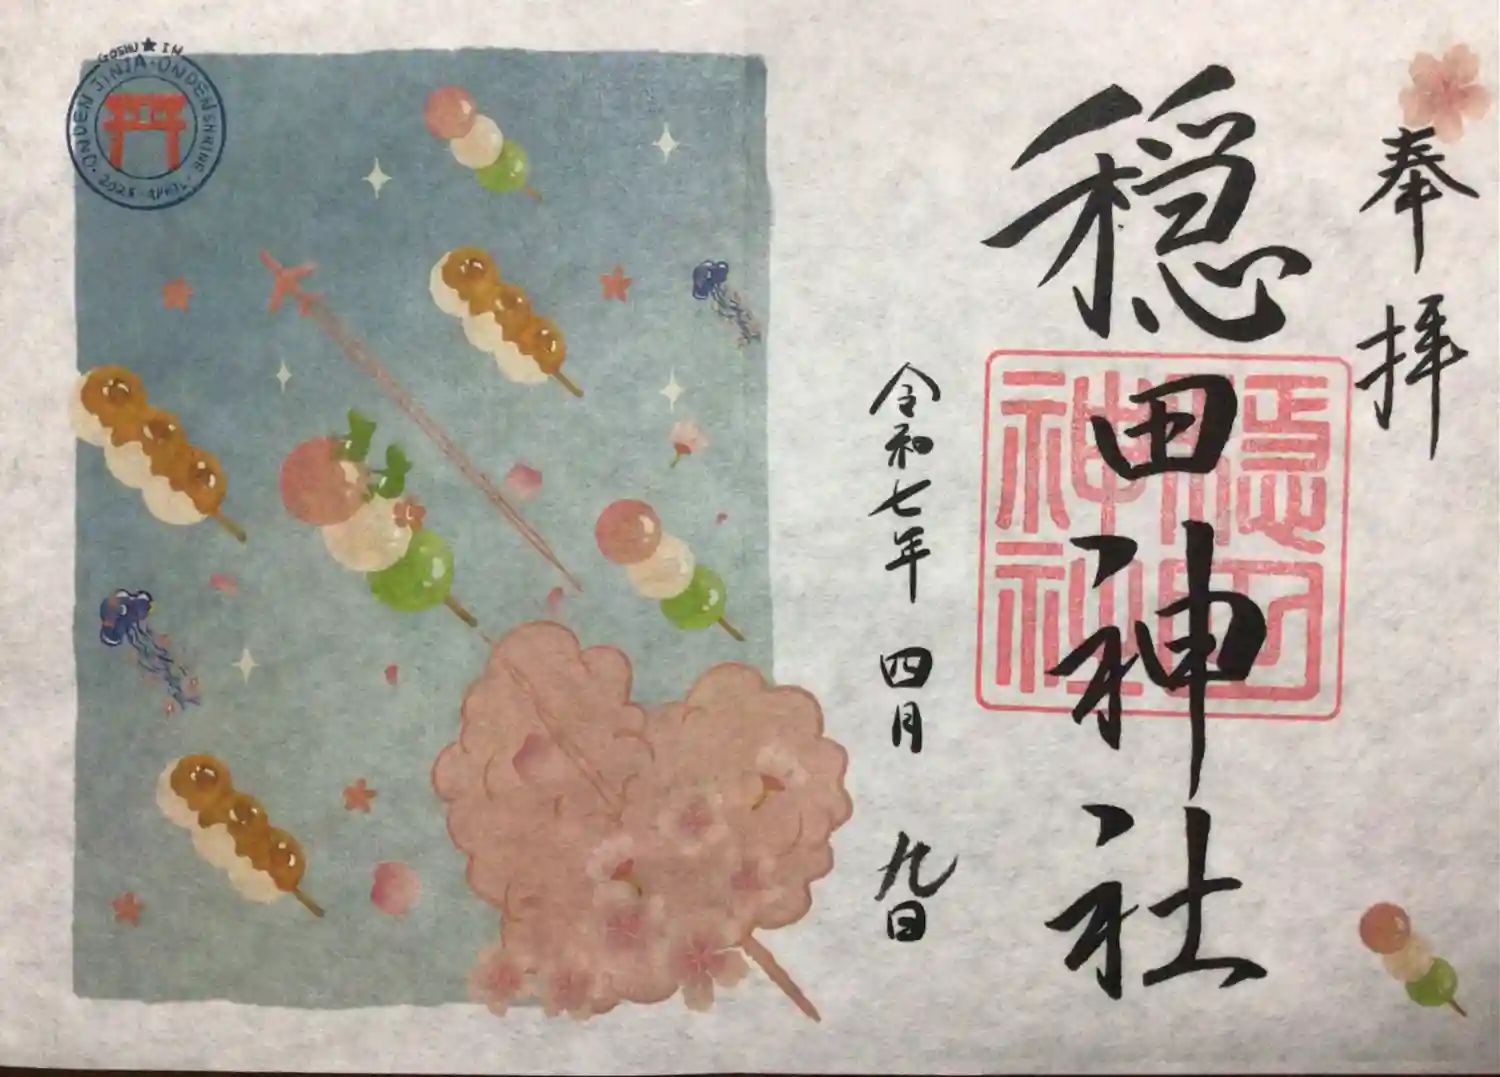 奉拝
穏田神社
穏田
神社
令和七年 四月 九日
GOSHU★IN
ONDEN JINJA・ONDEN SHRINE・2025・APRIL・